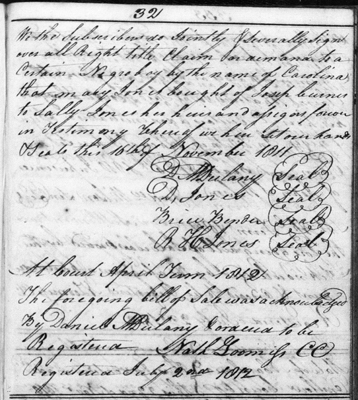 32
We the Subscribers do Jointly & Severally Sign
over all Right title Claim Interest & demand to a
Certain Negro boy by the name of Carolina
that mary Jones bought of Joseph
to Sally Jones her heirs and assigns forever
in testimony whereof we have set our hands
& Seals this 16th of November 1811
D. Mulany Seal
D. Jones Seal
Brice Bender Seal
R. H. Jones Seal
At Court April Term 1812
The foregoing bill of Sale was acknowledged
By Daniel Mulany Ordered to be
Registered Nath Loomiss CC
Registered July 2nd 1812